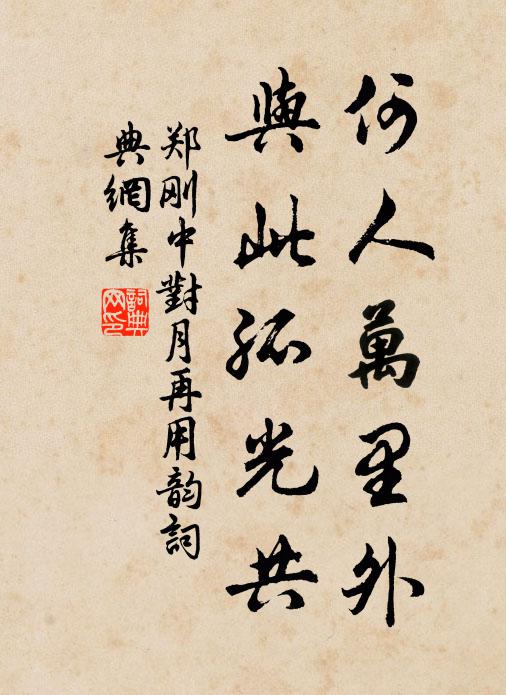 何人萬里外
與此孤光共
郑刚中對月再用韵詞
典網集
詞典网印